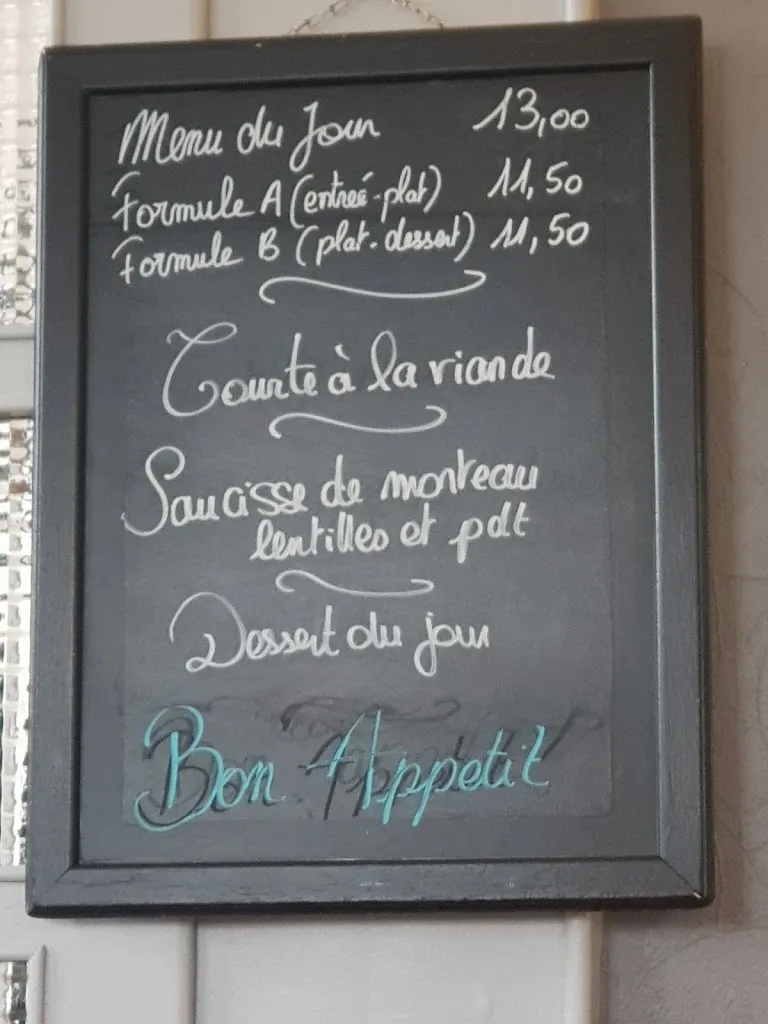 Menu du Jour 13,00
Formule A (entreé-plat) 11,50
Formule B (plat-dessert) 11,50
Tourte à la viande
Saucisse de morteau
lentilles et pdt
Dessert du jour
Bon Appetit